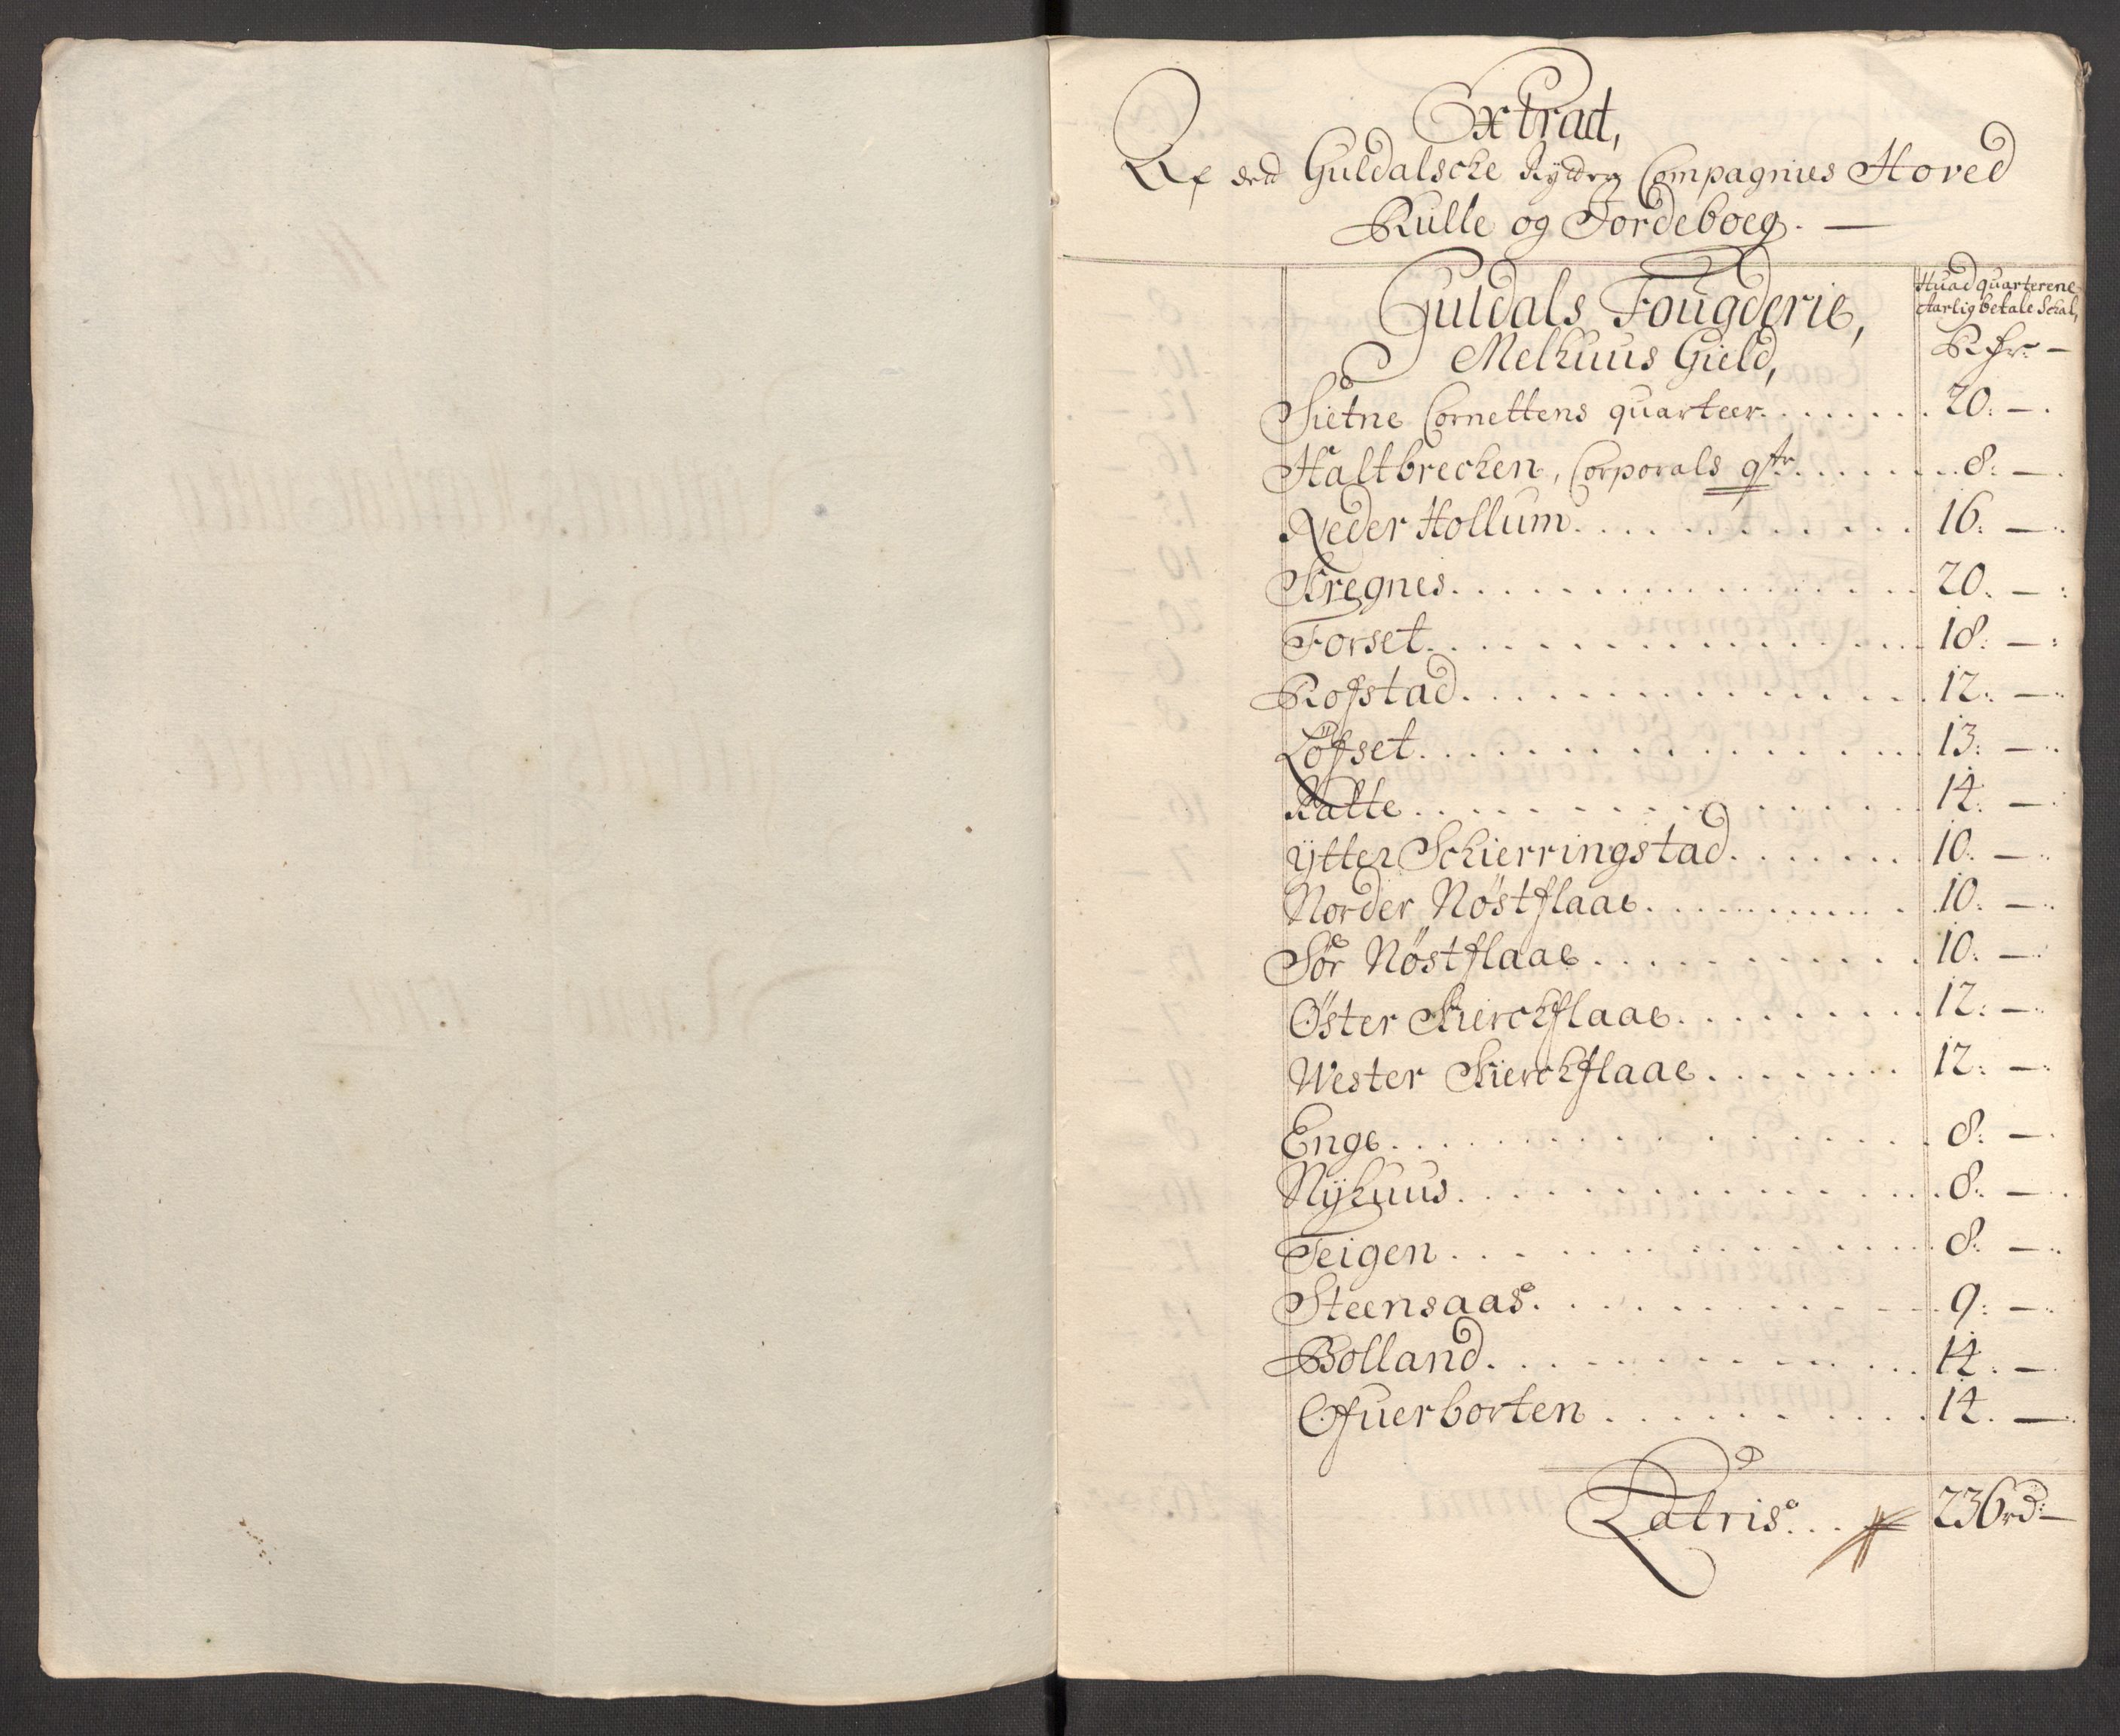 Extract,
Af det Guldalsche Rytter Compagnies Hoved
Rulle og Jordeboeg. —
Guldals Fougderie,
Huad quarterene
Aarlig betale Schal,
Melhuus Gield,
Rdr —
Sietne Cornettens quarteer. . . . . . . 20: —.
Haltbrechen, Corporals qtr. . . . . . . 8: —.
Neder Hollum. . . . . . . 16: —.
Kregnes. . . . . . . 20: —:
Forset. . . . . . . 18: —:
Rofstad. . . . . . . 12: —.
Löfset. . . . . . . 13: —.
Kalte. . . . . . . 14: —.
ytter Schierringstad. . . . . . . 10: —.
Norder Nöstflaae. . . . . . . 10: —.
Sör Nöstflaae. . . . . . . 10: —.
Öster Kierchflaae. . . . . . . 12: —.
Wester Kierchflaae. . . . . . . 12: —.
Enge. . . . . . . 8: —.
Nyhuus. . . . . . . 8: —.
Teigen. . . . . . . 8: —.
Steensaas. . . . . . . 9: —.
Bolland. . . . . . . 14: —
Ofuerborten. . . . . . . 14. —
Latris. . . 236 rd: —